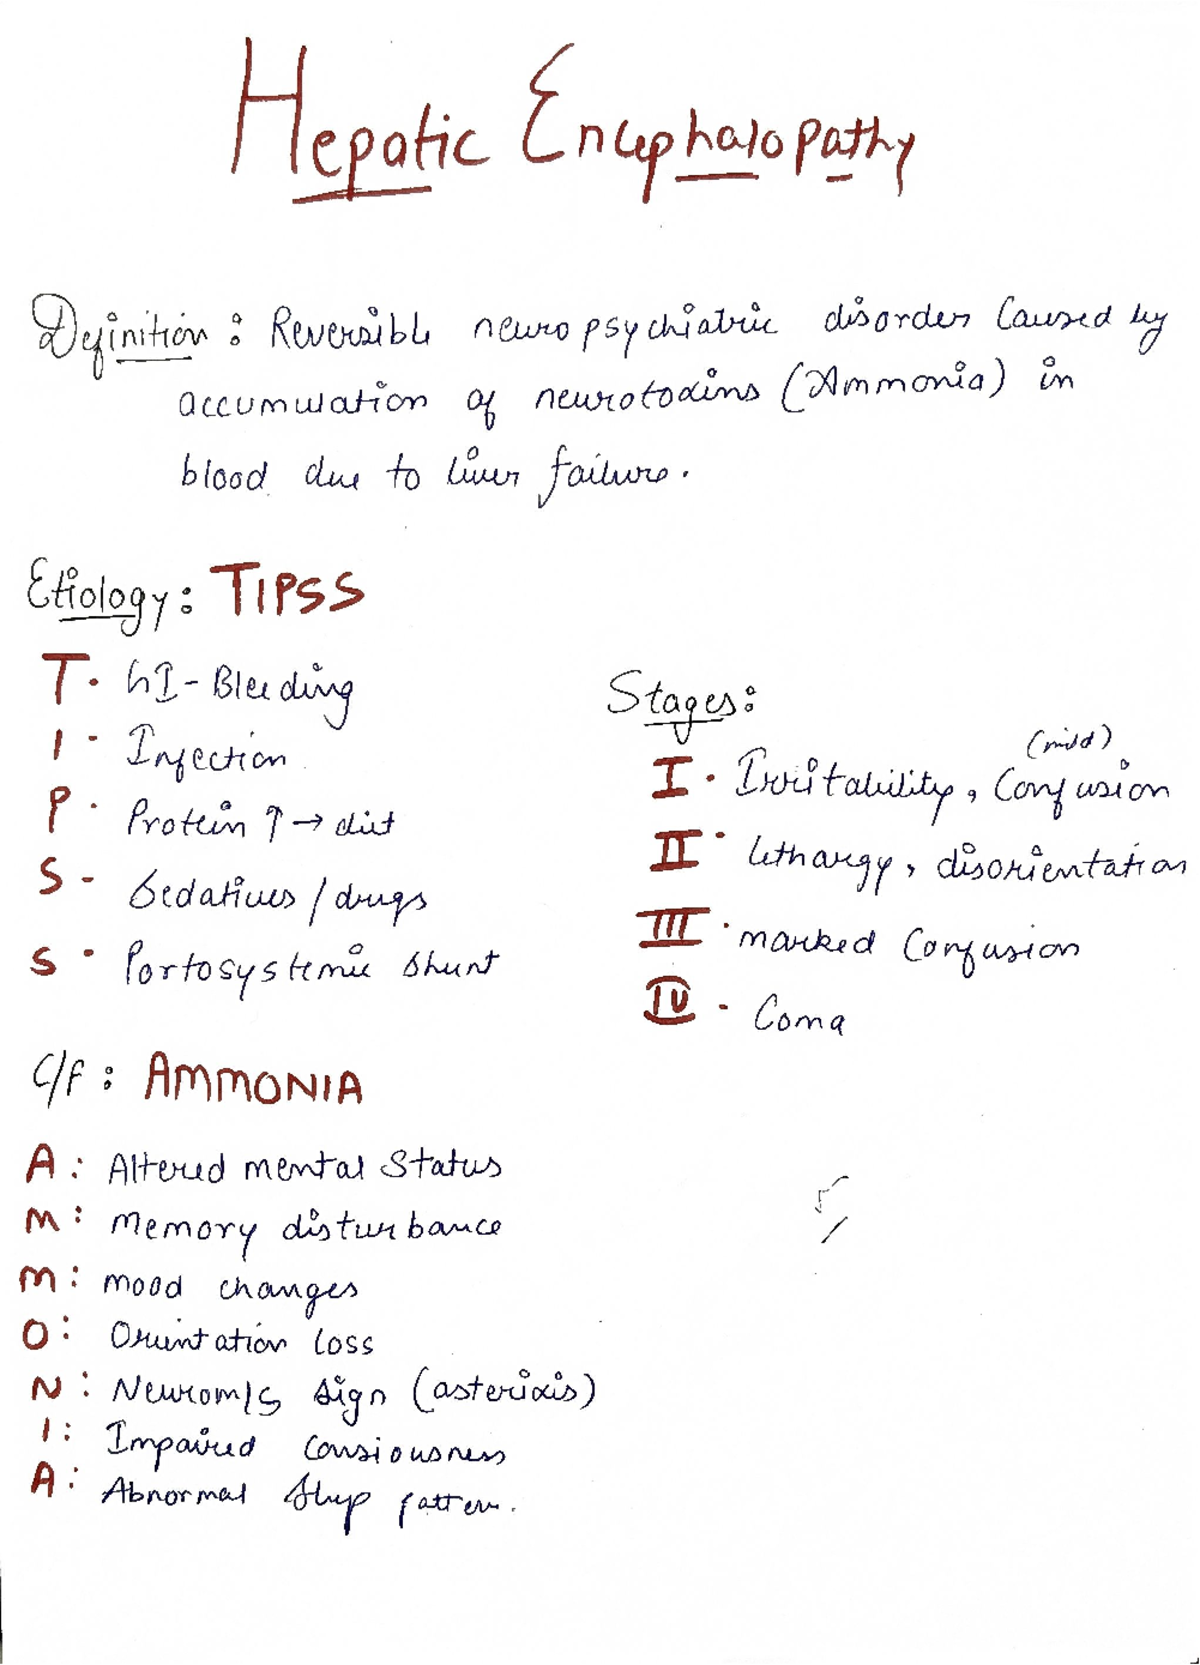 Hepatic Encephalopathy
Definition : Reversible neuropsychiatric disorder Caused by
accumulation of neurotoxins (Ammonia) in
blood due to liver failure.
Etiology : TIPSS
T. GI-Bleeding
I - Infection
P. Protein ↑ → diet
S - Sedatives / drugs
S - Portosystemic shunt
Stages :
(mild)
I. Irritability, Confusion
II. lethargy, disorientation
III. marked Confusion
IV. Coma
C/F : AMMONIA
A : Altered mental Status
M : Memory disturbance
M : mood changes
O : Orientation loss
N : Neurom/s sign (asterixis)
I : Impaired consiousness
A : Abnormal sleep pattern.